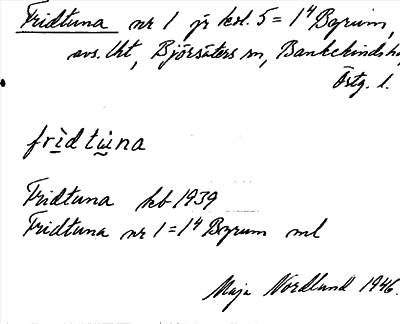 Fridtuna nr 1 jr kol. 5 = 1⁴ Byrum,
avs. lht, Björsäters sn, Bankekinds h
Östg. l.
frìdtu̇na
Fridtuna kb 1939
Fridtuna nr 1 = 1⁴ Byrum ml
Maja Nordlund 1946.